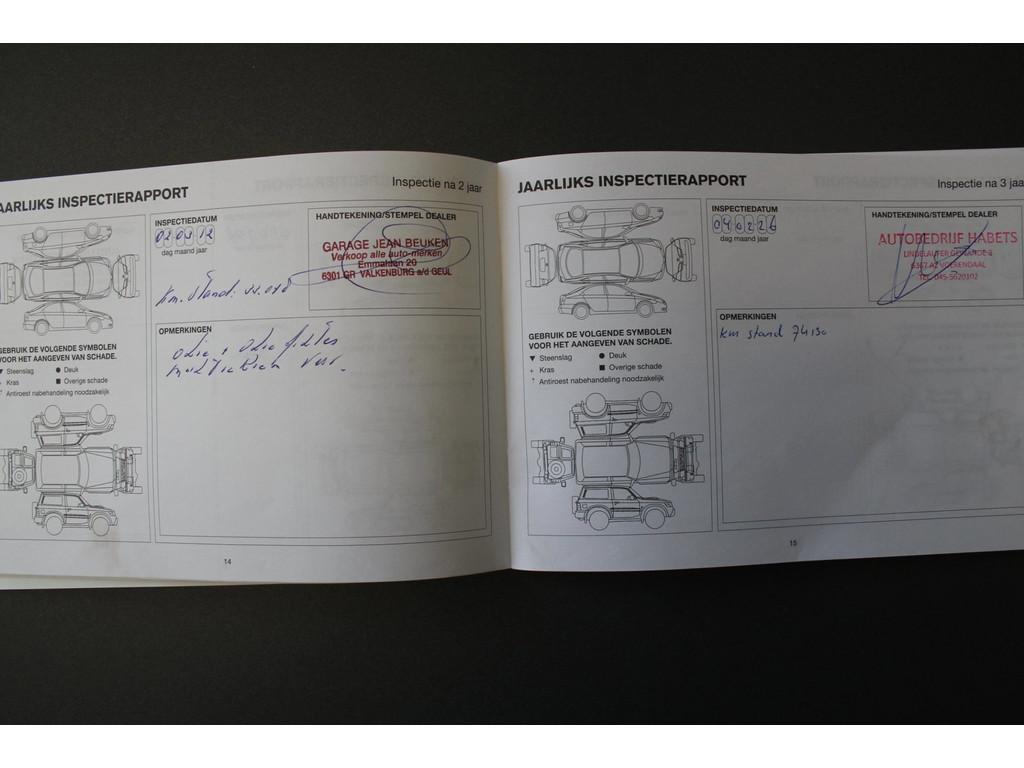 AARLIJKS INSPECTIERAPPORT
Inspectie na 2 jaar
INSPECTIEDATUM
dag maand jaar
HANDTEKENING/STEMPEL DEALER
GARAGE JEAN BEUKEN
Verkoop alle auto-merken
Emmalaan 20
6301 GR VALKENBURG a/d GEUL
Km. Stand:
GEBRUIK DE VOLGENDE SYMBOLEN
VOOR HET AANGEVEN VAN SCHADE.
▼ Steenslag ● Deuk
+ Kras ■ Overige schade
* Antiroest nabehandeling noodzakelijk
OPMERKINGEN
olie + olie filter
14
JAARLIJKS INSPECTIERAPPORT
Inspectie na 3 jaa
INSPECTIEDATUM
040226
dag maand jaar
HANDTEKENING/STEMPEL DEALER
AUTOBEDRIJF HABETS
LINDELAUFER GEWANDE 8
6367 AZ VOERENDAAL
TEL. 045-5620102
GEBRUIK DE VOLGENDE SYMBOLEN
VOOR HET AANGEVEN VAN SCHADE.
▼ Steenslag ● Deuk
+ Kras ■ Overige schade
* Antiroest nabehandeling noodzakelijk
OPMERKINGEN
km stand 74130
15